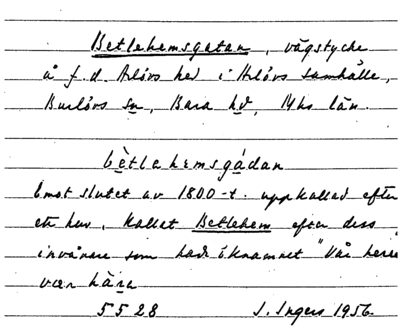 Betlehemsgatan, vägstycke
å f.d. Arlövs hed i Arlövs samhälle,
Burlövs sn, Bara hd, Mhs län.
bètlehemsgádan
Emot slutet av 1800-t. uppkallad efter
ett hus, kallat Betlehem efter dess
invånare som hade öknamnet "Vår herre
vær kära
5528 I. Ingers 1956.